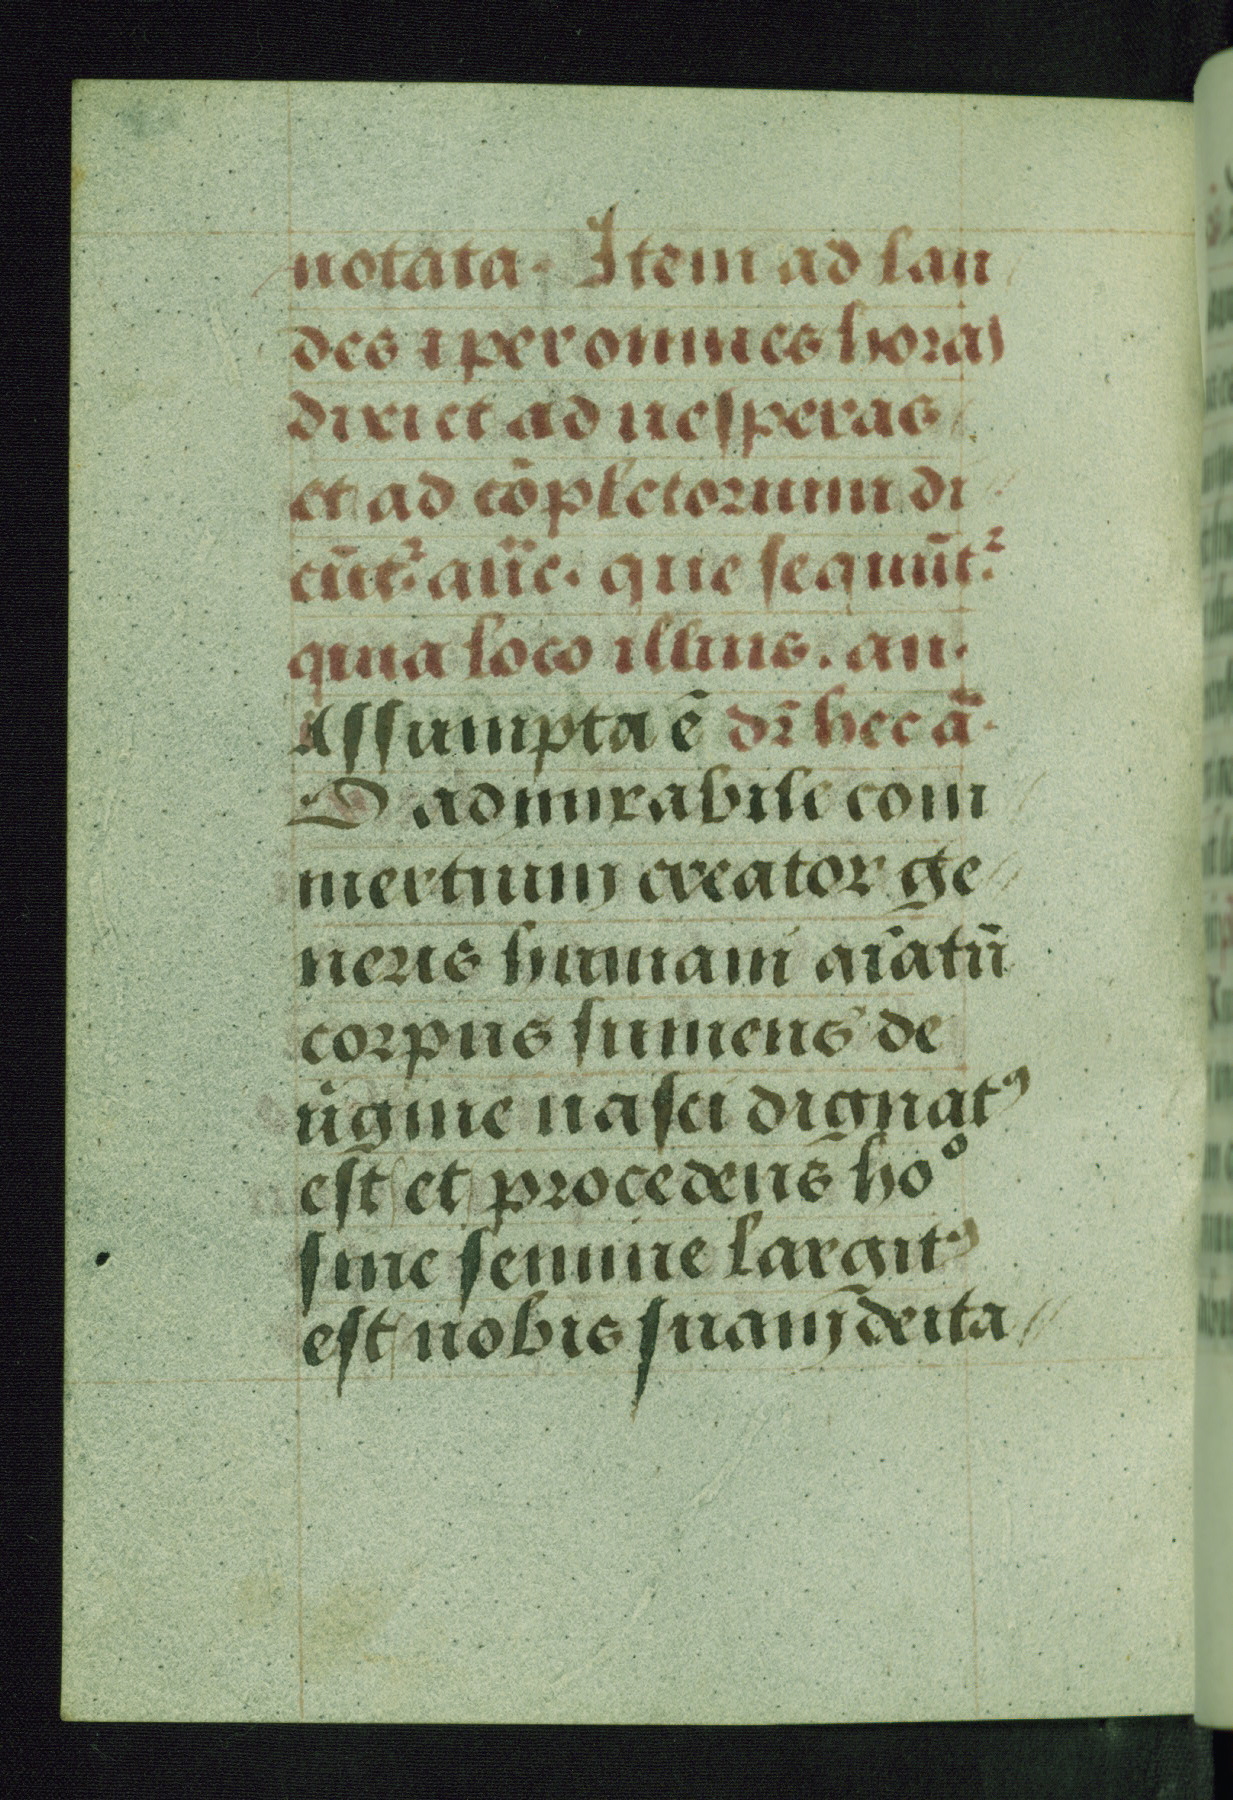 notata. Item ad lau
des ⁊ per omnes horas
dixi et ad uesperas
et ad cõpletorium di
cũt᷑. añe. que sequũt᷑.
quia loco illius. an.
Assumpta ẽ dr̃ hec ã.
O admirabile com
mertium creator ge
neris humani aĩatũ
corpus sumens de
uĩgine nasci dignatꝰ
est et procedens hoº
sine semine largitꝰ
est nobis suam deita